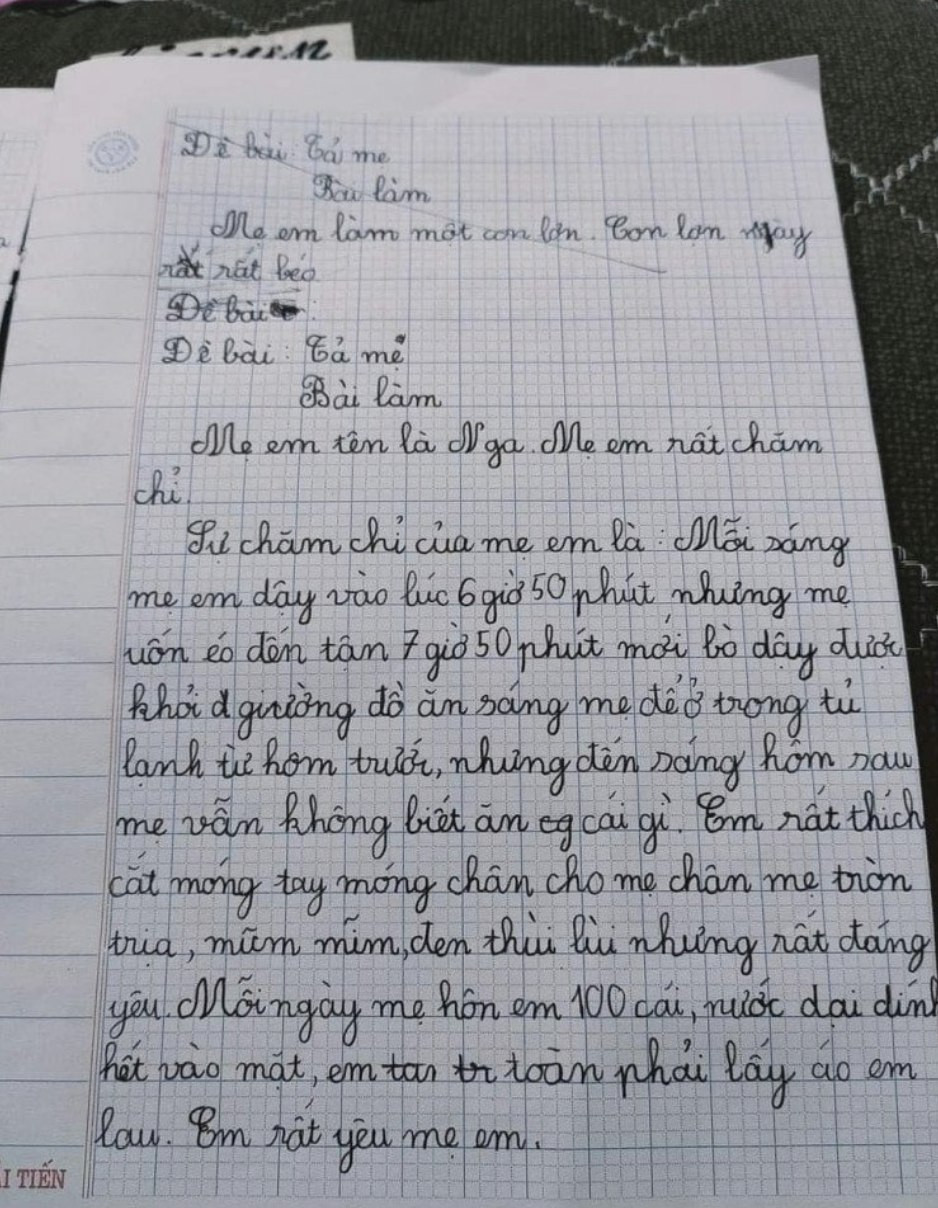 Đề bài: Tả mẹ
Bài làm
Mẹ em làm một con lợn. Con lợn này
rất rất béo
Đề bài
Đề bài: Tả mẹ
Bài làm
Mẹ em tên là Nga. Mẹ em rất chăm
chỉ.
Sự chăm chỉ của mẹ em là: Mỗi sáng
mẹ em dậy vào lúc 6 giờ 50 phút nhưng mẹ
uốn éo đến tận 7 giờ 50 phút mới bò dậy được
khỏi giường đồ ăn sáng mẹ để ở trong tủ
lạnh từ hôm trước, nhưng đến sáng hôm sau
mẹ vẫn không biết ăn cái gì. Em rất thích
cắt móng tay móng chân cho mẹ chân mẹ tròn
trịa, mũm mĩm, đen thùi lùi nhưng rất đáng
yêu. Mỗi ngày mẹ hôn em 100 cái, nước dại dính
hết vào mặt, em toàn phải lấy áo em
lau. Em rất yêu mẹ em.
I TIẾN